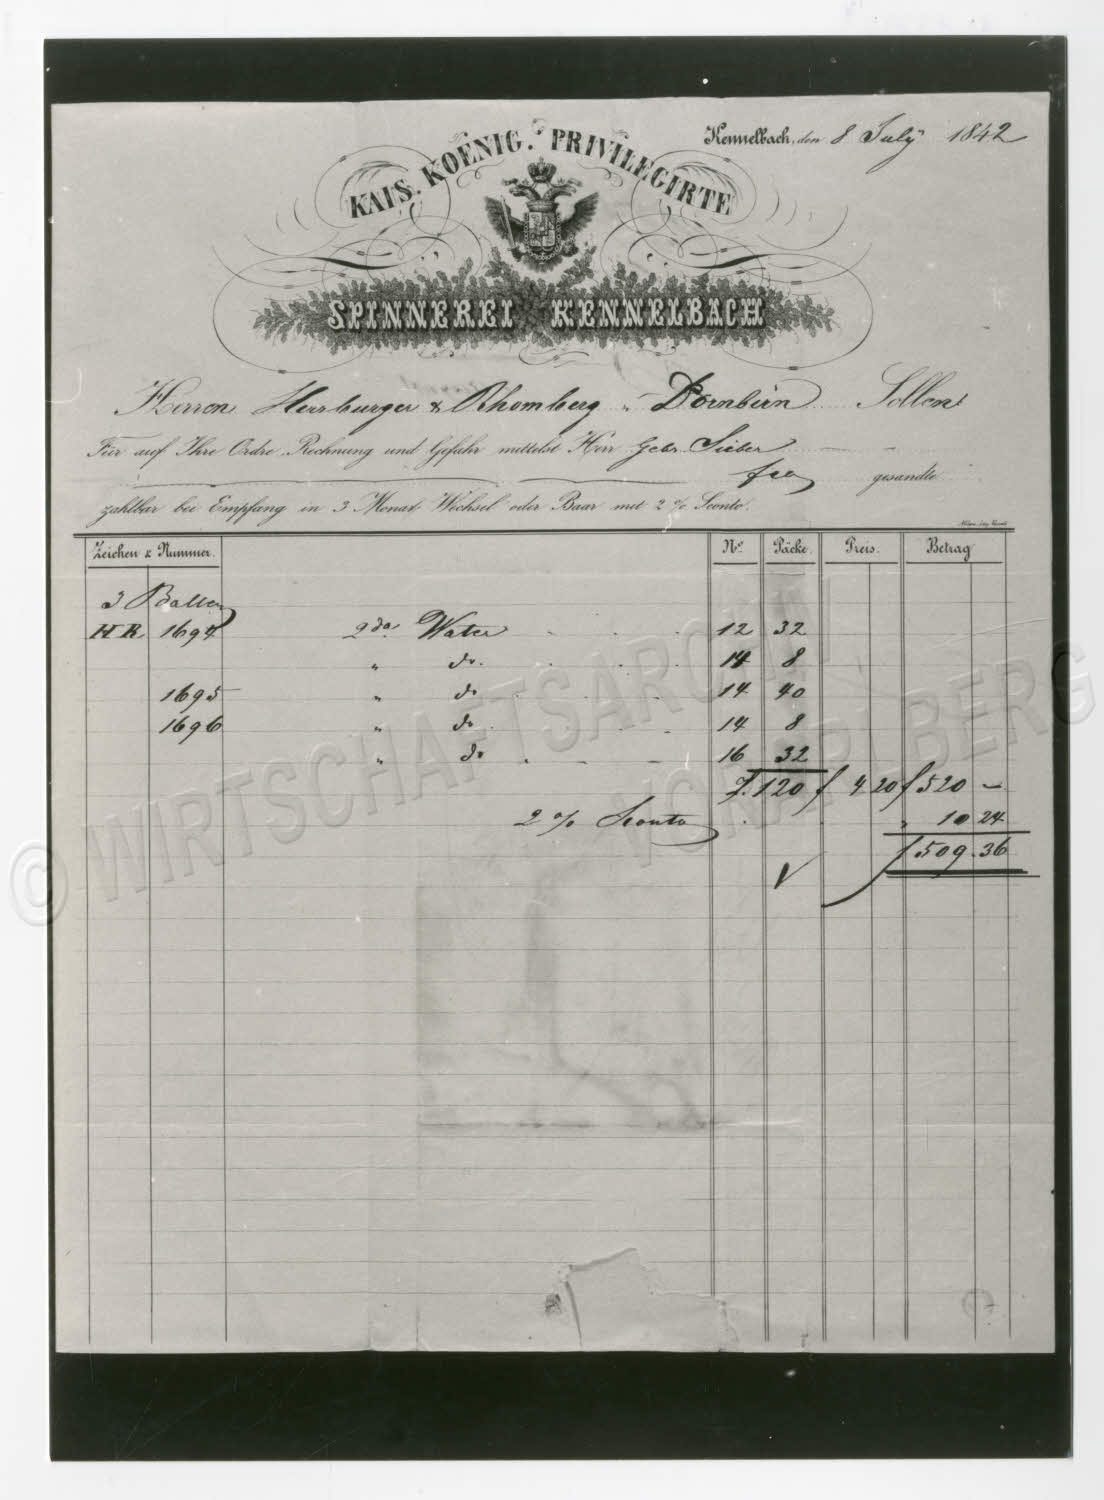 Kennelbach, den 8 July 1842
KAIS. KOENIG. PRIVILEGIRTE
SPINNEREI KENNELBACH
Herren Herrburger & Rhomberg in Dornbirn Sollen
Für auf Ihre Ordre Rechnung und Gefahr mittelst Herr Gebr Sieber
gesandte
zahlbar bei Empfang in 3 Monat Wechsel oder Baar mit 2 % Sconto.
Zeichen & Nummer. No. Päcke. Preis. Betrag
3 Ballen
HR 1694 2da Water 12 32
" do. 14 8
1695 " do 14 40
1696 " do. 14 8
" do 16 32
120 f 4 20 f 520 –
2 % Sconto " 10 24
f 509.36
© WIRTSCHAFTSARCHIV VORARLBERG